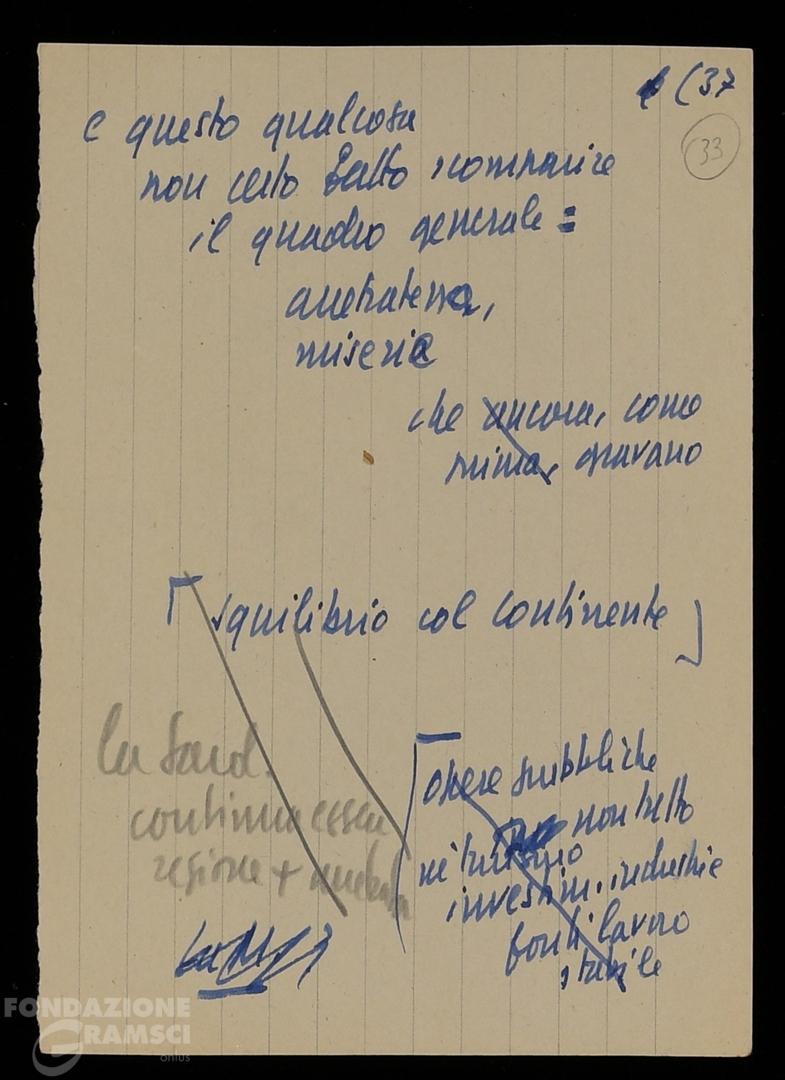 (37
33
e questo qualcosa
non certo fatto scomparire
il quadro generale =
arretratezza,
miseria
che ancora, come
prima, gravano
squilibrio col continente
la Sard.
continua essere
regione + arretrata
opere pubbliche
non tutto
né turismo
investim. industrie
fonti lavoro
stabile
FONDAZIONE
GRAMSCI
onlus